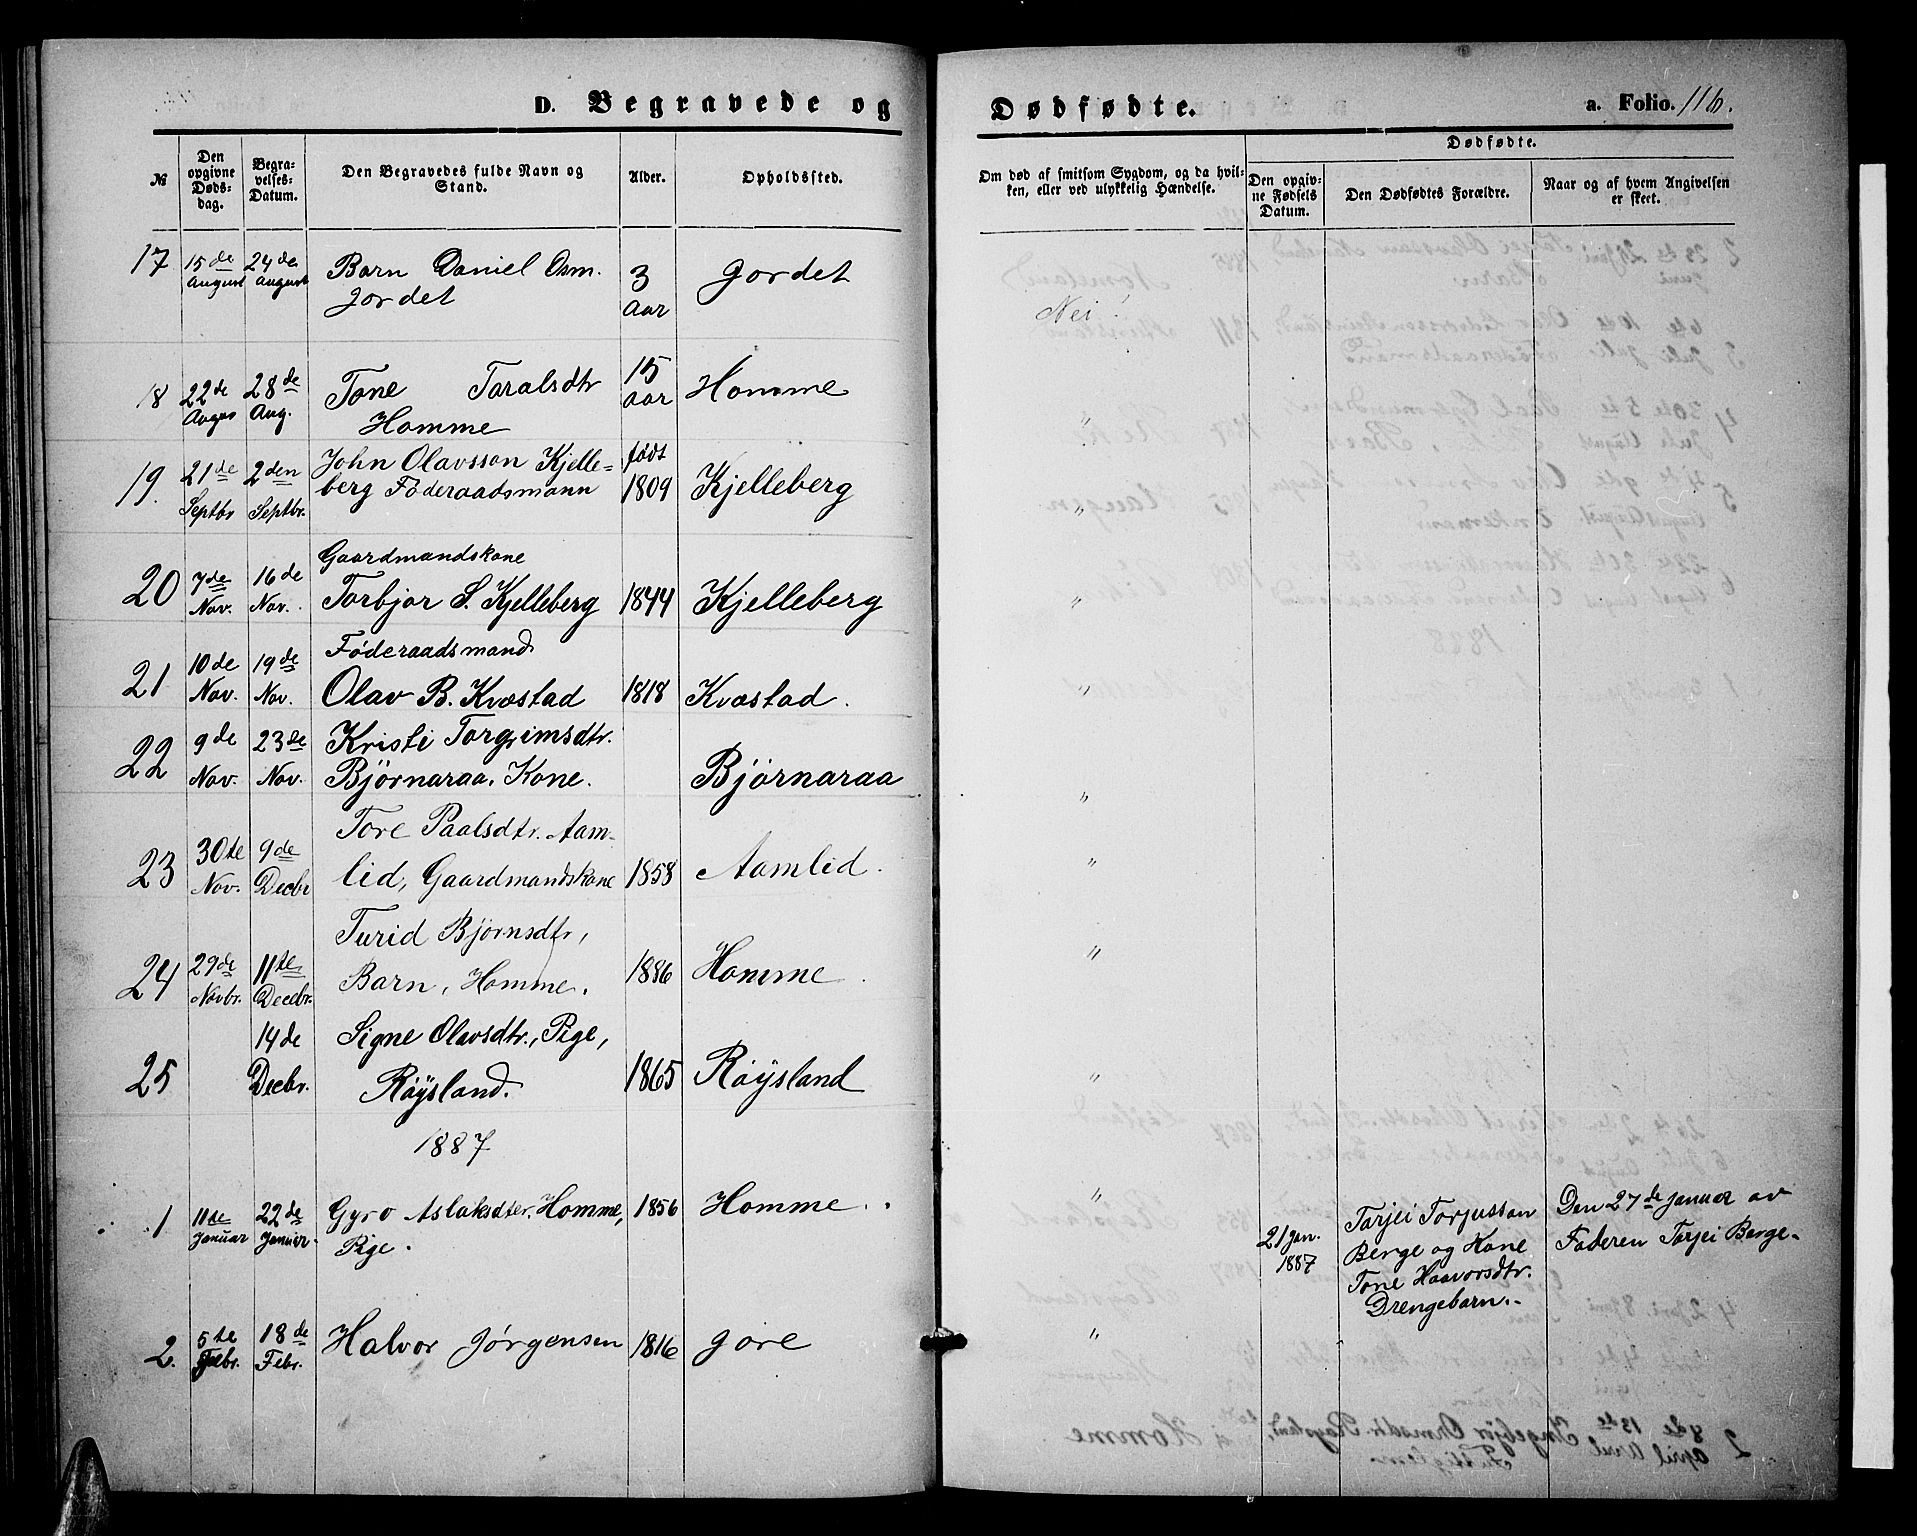 D. Begravede og
Dødfødte.
a. Folio. 116.
№
Den opgivne Døds-dag.
Begra-velses-Datum.
Den Begravedes fulde Navn og Stand.
Alder.
Opholdssted.
Om død af smitsom Sygdom, og da hvil-
ken, eller ved ulykkelig Hændelse.
Dødfødte.
Den opgiv-
ne Fødsels
Datum.
Den Dødfødtes Forældre.
Naar og af hvem Angivelsen
er skeet.
17 15de August 24de August Barn Daniel Osm. 3 Aar Jordet
Jordet
Nei!
18 22de Augus 28de Aug. Tone Taralsdtr 15 Aar Homme
Homme
"
19. 21de Septbr 2den Septbr. John Olavsson Kjelle- født 1809 Kjelleberg
berg Føderaadsmann
"
20 7de Nov. 16de Nov. Gaardmandskone
Torbjør S. Kjelleberg 1844 Kjelleberg
"
21 10de Nov. 19de Nov. Føderaadsmand
Olav B. Kvæstad 1818 Kvæstad.
"
22 9de Nov. 23de Nov. Kristi Torgrimsdtr.
Bjørnaraa, Kone. Bjørnaraa
"
23 30te Nov. 9de Decbr Tore Paalsdtr. Aam-
lid, Gaardmandskone 1858 Aamlid.
"
24 29de Novbr. 11te Decebr. Turid Bjørnsdtr,
Barn, Homme. 1886 Homme.
"
25 14de Decbr. Signe Olavsdtr., Pige,
Røysland. 1865 Røysland
"
1887
1 11de Januar 22de Januar. Gyro Aslaksdter. Homme, 1856 Homme.
Pige.
"
21 Jan.
1887
Tarjei Torjusson
Berge og Kone
Tone Haavorsdtr.
Drengebarn.
Den 27de Januar av
Faderen Tarjei Berge.
2. 5te Febr. 18de Febr. Halvor Jørgensen 1816 Jore
"